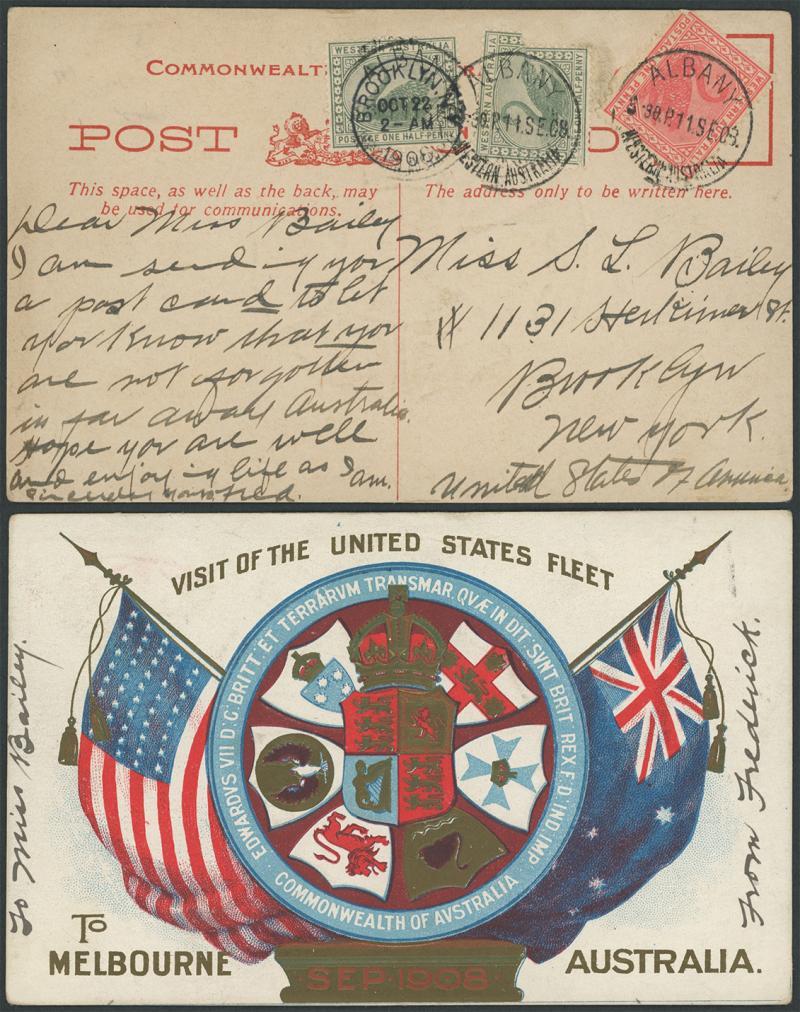 COMMONWEALT
POST
D
WESTERN AUSTRALIA
POSTAGE ONE HALF-PENNY
BROOKLYN, N.Y.
OCT 22
2-AM
1908
ALBANY
5-30.P.11.SE.08.
WESTERN AUSTRALIA
ALBANY
5-30.P.11.SE.08.
WESTERN AUSTRALIA
This space, as well as the back, may
be used for communications.
The address only to be written here.
Dear Miss Bailey
I am sending you
a post card to let
you know that you
are not forgotten
in far away Australia.
Hope you are well
and enjoying life as I am.
sincerely yours Fred.
Miss S. L. Bailey
# 1131 Herkimer St.
Brooklyn
New York.
United States of America
VISIT OF THE UNITED STATES FLEET
EDWARDVS VII D:G:BRITT:ET TERRARVM TRANSMAR.QVÆ IN DIT:SVNT BRIT:REX F:D:IND:IMP
COMMONWEALTH OF AVSTRALIA
To Miss Bailey.
From Frederick.
To
MELBOURNE
SEP·1908
AUSTRALIA.